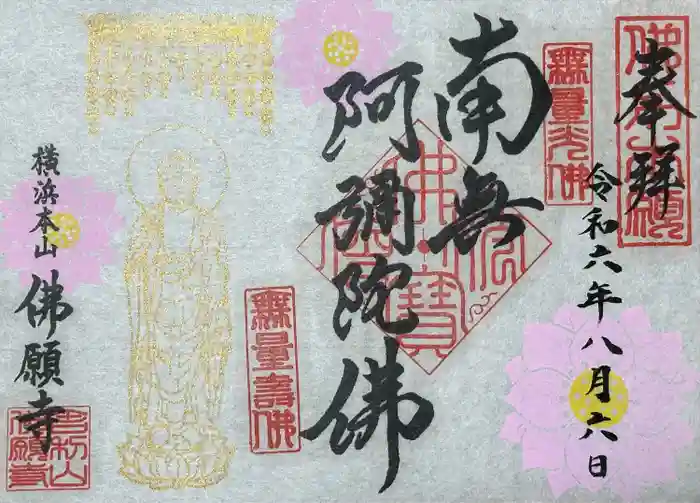 奉拝
令和六年八月六日
無量光佛
南無
阿彌陀佛
無量壽佛
横浜本山
佛願寺